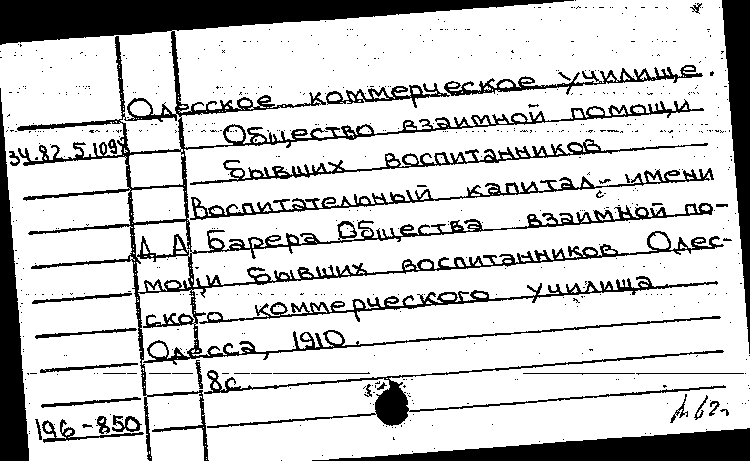 Одесское коммерческое училище.
34.82.5.1098 Общество взаимной помощи
бывших воспитанников
Воспитательный капитал имени
Д. А Барера Общества взаимной по-
мощи бывших воспитанников Одес-
ского коммерческого училища
Одесса, 1910.
8с.
196-850